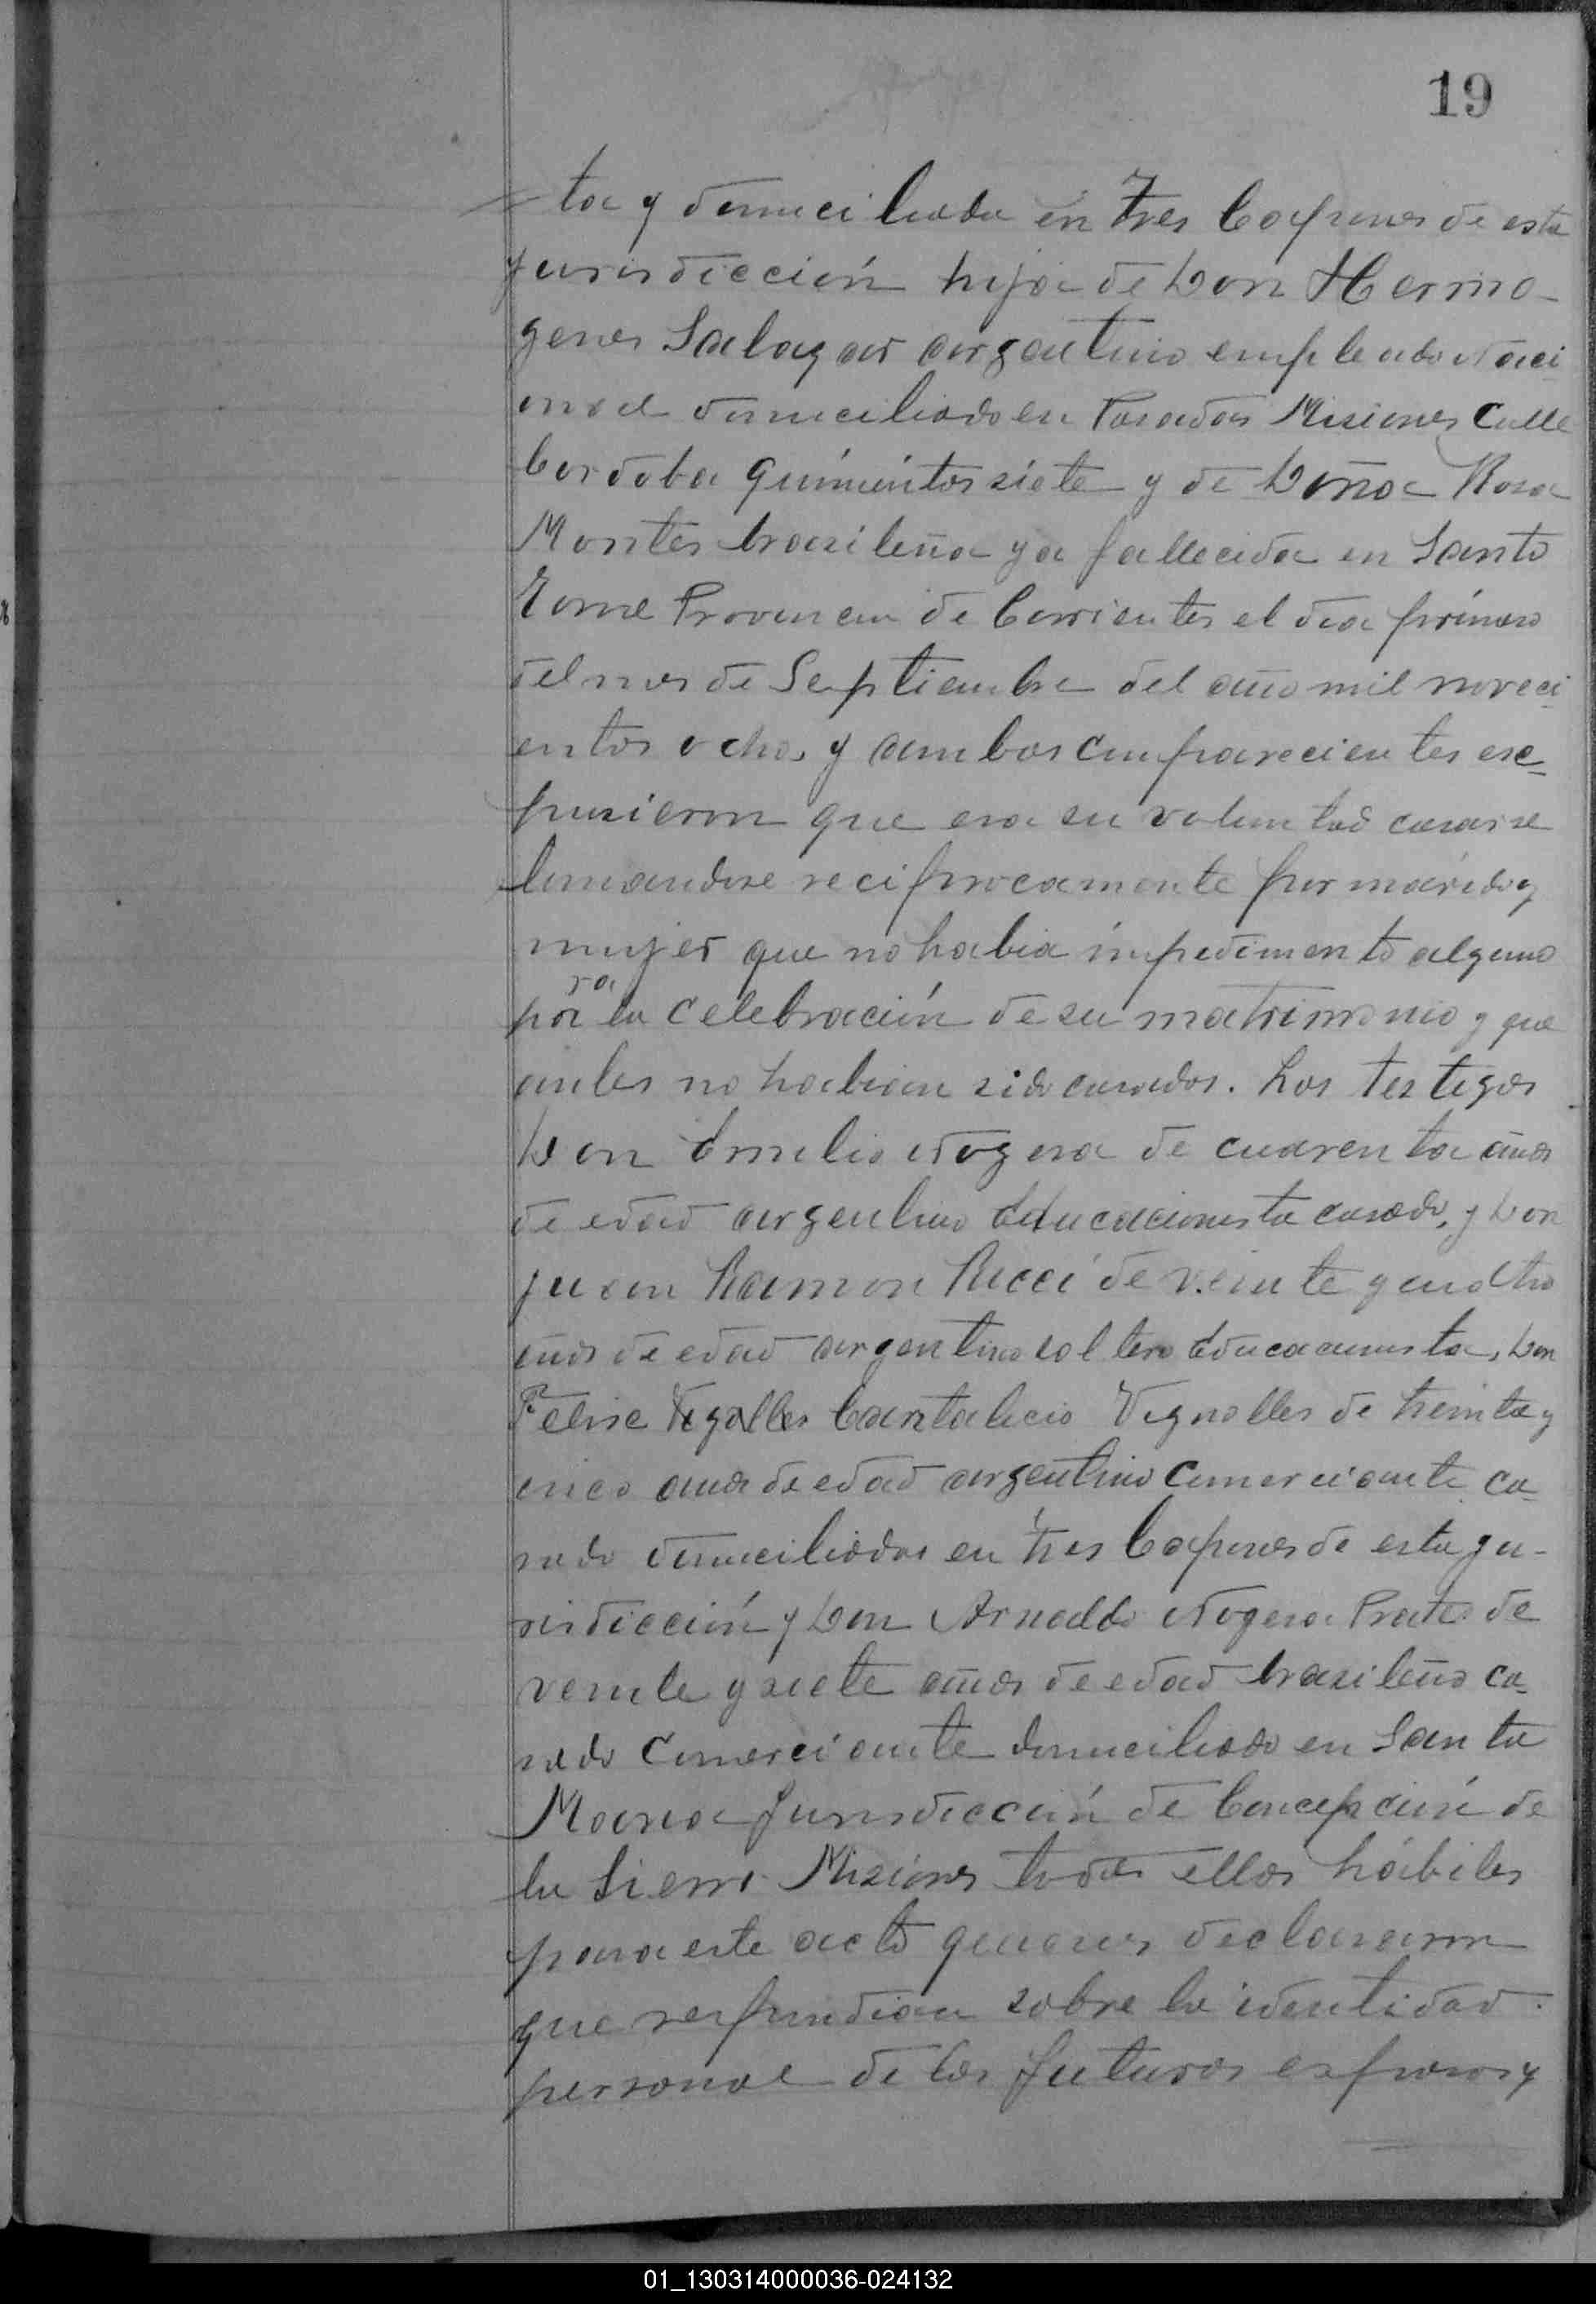 19
ta y domiciliada en Tres Capones de esta
jurisdicción hija de Don Hermo-
genes Salazar argentino empleado Naci-
onal domiciliado en Posadas Misiones Calle
Cordoba quinientos siete y de Doña Rosa
Montes brasileña ya fallecida en Santo
Tome Provincia de Corrientes el dia primero
del mes de Septiembre del año mil noveci-
entos ocho, y ambos comparecientes es-
pusieron que era su voluntad casarse
tomandose reciprocamente por marido y
mujer que no habia impedimento alguno
ra
pa la celebración de su matrimonio y que
antes no habian sido casados. Los testigos
Don Emilio Nogera de cuarenta años
de edad argentino Educacionista casado, y Don
Juan Ramon Ricci de veinte y cuatro
años de edad argentino soltero Educacionista, Don
Felise Cantalicio Vignolles de treinta y
cinco años de edad argentino Comerciante ca-
sado domiciliados en tres Capones de esta ju-
risdicción y Don Arnaldo Nogera Prates de
veinte y siete años de edad brasileño ca-
sado Comerciante domiciliado en Santa
Maria Jurisdicción de Concepción de
la Sierra Misiones todos ellos hábiles
para este acto quienes declararon
que respondian sobre la identidad
personal de los futuros esposos y
01_130314000036-024132